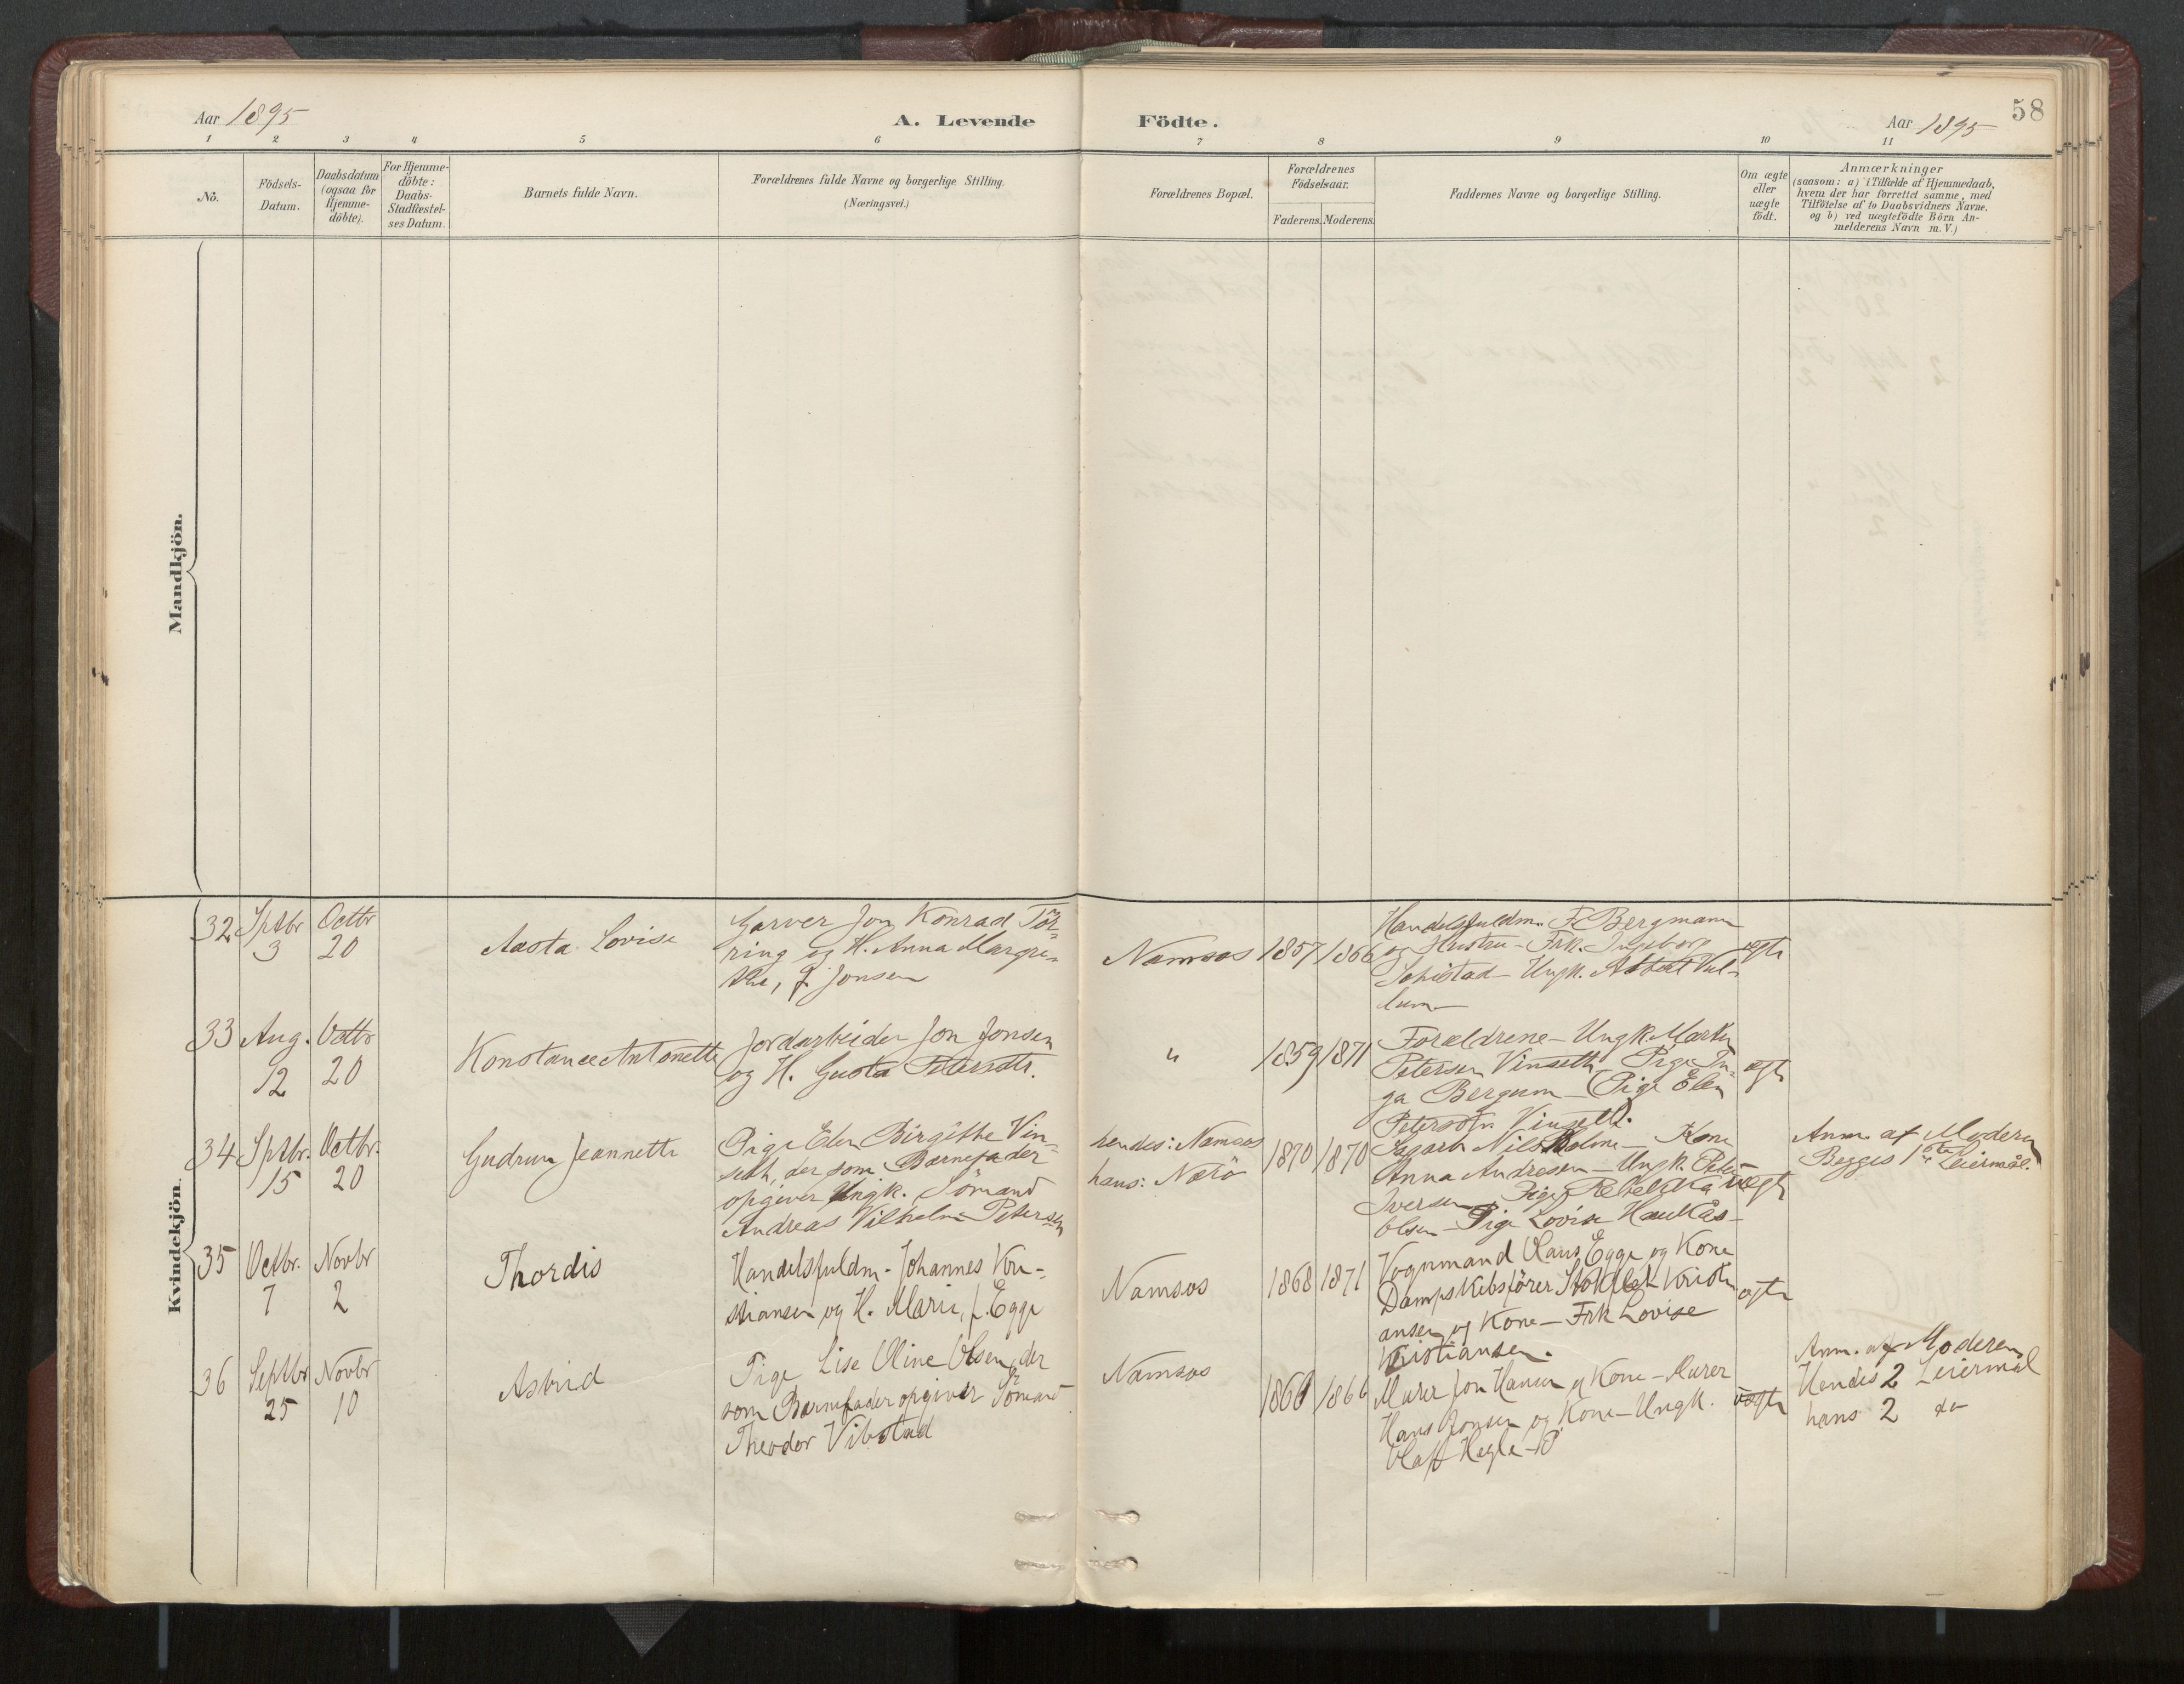 58
Aar 1895
A. Levende Födte.
Aar 1895
1 2 3 4 5 6 7 8 9 10 11
No.
Födsels-
Datum.
Daabsdatum
(ogsaa for
Hjemme-
döbte).
For Hjemme-
döbte:
Daabs-
Stadfæstel-
ses Datum.
Barnets fulde Navn.
Forældrenes fulde Navne og borgerlige Stilling.
(Næringsvei.)
Forældrenes Bopæl.
Forældrenes
Födselsaar.
Faderens. Moderens.
Faddernes Navne og borgerlige Stilling.
Om ægte
eller
uægte
födt.
Anmærkninger
(saasom: a) i Tilfælde af Hjemmedaab,
hvem der har forrettet samme, med
Tilföielse af to Daabsvidners Navne,
og b) ved uægtefödte Börn An-
melderens Navn m.V.)
Mandkjön.
Kvindekjön.
32
Sptbr
3
Octbr
20
Aasta Lovise
Garver Jon Konrad Tör-
ring og H. Anna Margre-
the, f. Jonsen
Namsos
1857
1866
Handelsfuldm. F. Bergmann
og Hustru - Frk. Ingeborg
Schistad - Ungk. Albert Vul-
lum
ægte
33
Aug.
12
Octbr
20
Konstance Antonette
Jordarbeider Jon Jonsen
og H. Gusta Petersdtr.
"
1859
1871
Forældrene - Ungk. Martin
Petersen Vinseth - Pige In-
ga Bergum - Pige Elen
Petersdtr Vinseth.
ægte
34
Sptbr.
15
Octbr.
20
Gudrun Jeannette
Pige Elen Birgitte Vin-
seth, der som Barnefader
opgiver Ungk. Sömand
Andreas Vilhelm Petersen
hendes: Namsos
hans: Nærö
1870
1870
Sagarb. Nils Holme - Kone
Anna Andresen - Ungk. Peter
Iversen - Pige Rebekka
Olsen - Pige Lovise Haukås
uægte
Anm. af Moderen
Begges 1ste Leiermål.
35
Octbr.
7
Novbr
2
Thordis
Handelsfuldm. Johannes Kri-
stiansen og H. Marie, f. Egge
Namsos
1868
1871
Vognmand Claus Egge og Kone
Dampskibsförer Kristi
ansen og Kone - Frk Lovise
Kristiansen.
ægte
36
Septbr
25
Novbr
10
Astrid
Pige Lise Oline Olsen, der
som Barnefader opgiver Sömand
Theodor Vibstad
Namsos
1866
1866
Murer Jon Hansen og Kone - Murer
Hans Jonsen og Kone - Ungk.
Olaf Hegle
uægte
Anm. af Moderen
Hendes 2 Leiermål
hans 2 do